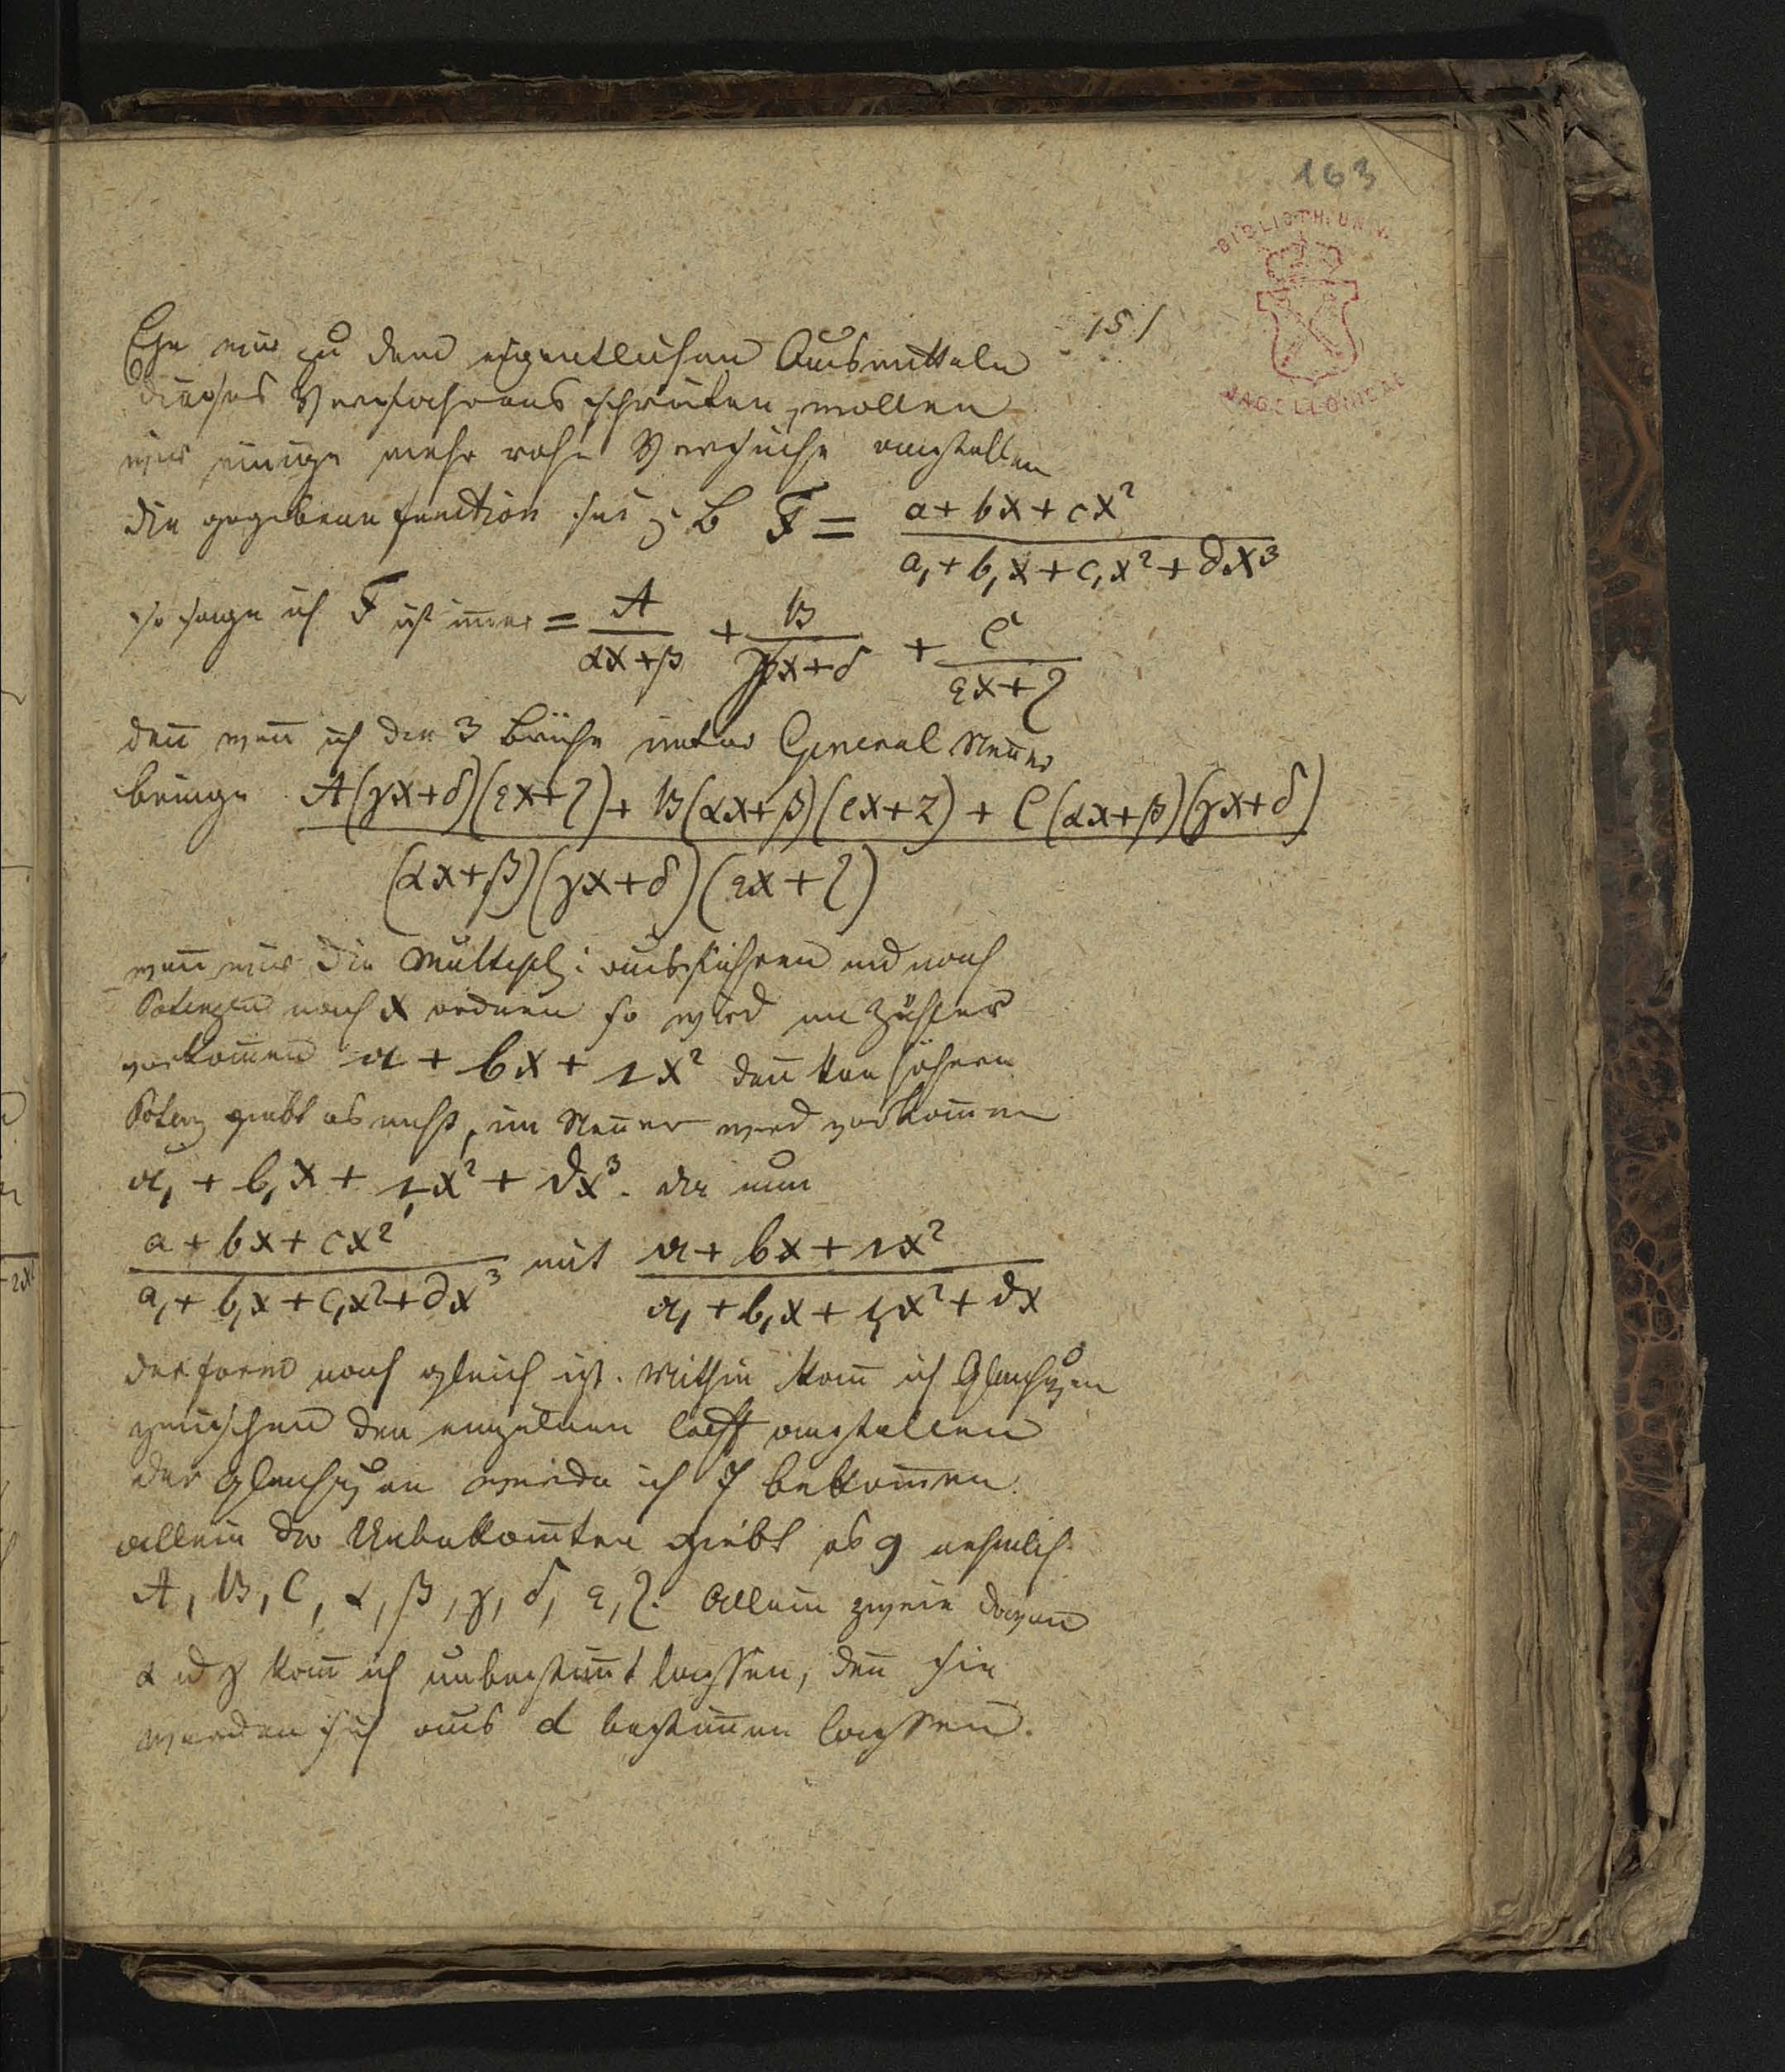 163
BIBLIOTH. UNIV.
JAGELLONICAE
151
Ehe wir zu dem eigentlichen Ausmitteln
dieses Verfahrens schreiten, wollen
wir einige mehr rohe Versuche anstellen
die gegebene function sei z B F = (a + bx + cx²)/(a, + b,x + c,x² + dx³)
so sage ich F ist im̄er = A/(αx+β) + B/(γx+δ) + C/(εx+ζ)
den̄ wen̄ ich die 3 Brüche unter General Nen̄er
bringe (A(γx+δ)(εx+ζ) + B(αx+β)(εx+ζ) + C(αx+β)(γx+δ))/((αx+β)(γx+δ)(εx+ζ))
wen̄ wir die Multipl: ausführen und nach
Potenzen nach x ordnen so wird im Zähler
vorkom̄en a + bx + cx² den̄ kein höhere
Potenz giebt es nicht, im Nen̄er wird vorkom̄en
a, + b,x + c,x² + dx³. da nun
(a + bx + cx²)/(a, + b,x + c,x² + dx³) mit (a + bx + cx²)/(a, + b,x + c,x² + dx)
der form nach gleich ist. Mithin kan̄ ich Gleichgen
zwischen den einzelnen Coeff anstellen
der Gleichgen werde ich 7 bekom̄en.
allein der Unbekan̄ten giebt es 9 nehmlich
A, B, C, α, β, γ, δ, ε, ζ. Allein zweie davon
α ud γ kan̄ ich unbestim̄t lassen, den̄ sie
werden sich aus d bestim̄en lassen.